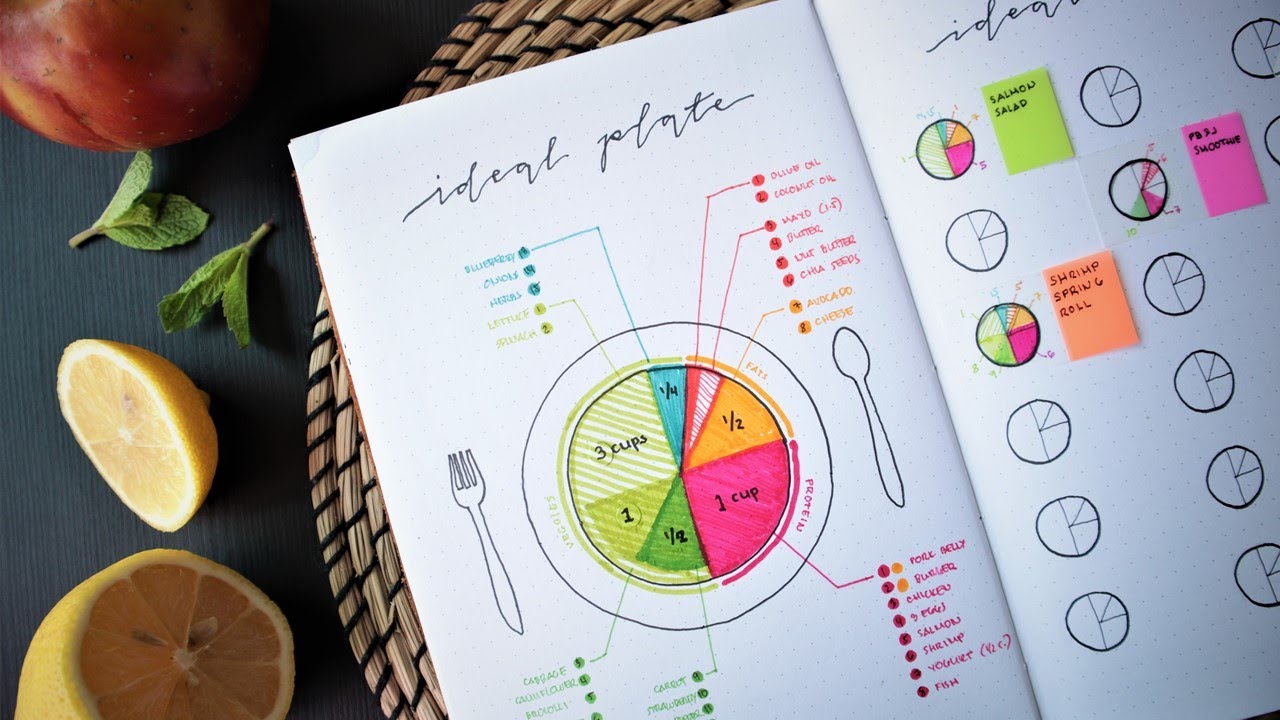 ideal plate
OLIVE OIL
COCONUT OIL
MAYO (1.5)
BUTTER
NUT BUTTER
CHIA SEEDS
AVOCADO
CHEESE
BLUEBERRY 13
ONIONS 14
HERBS 15
LETTUCE 1
SPINACH 2
FATS
1/4
1/2
3 cups
1 cup
1
1/2
VEGGIES
PROTEIN
1 PORK BELLY
2 BURGER
3 CHICKEN
4 3 EGGS
5 SALMON
6 SHRIMP
7 YOGURT (1/2 C.)
8 FISH
CABBAGE 3
CAULIFLOWER 4
BROCOLLI 5
CARROT 9
STRAWBERRY 10
11
ideal
SALMON
SALAD
PB&J
SMOOTHIE
SHRIMP
SPRING
ROLL